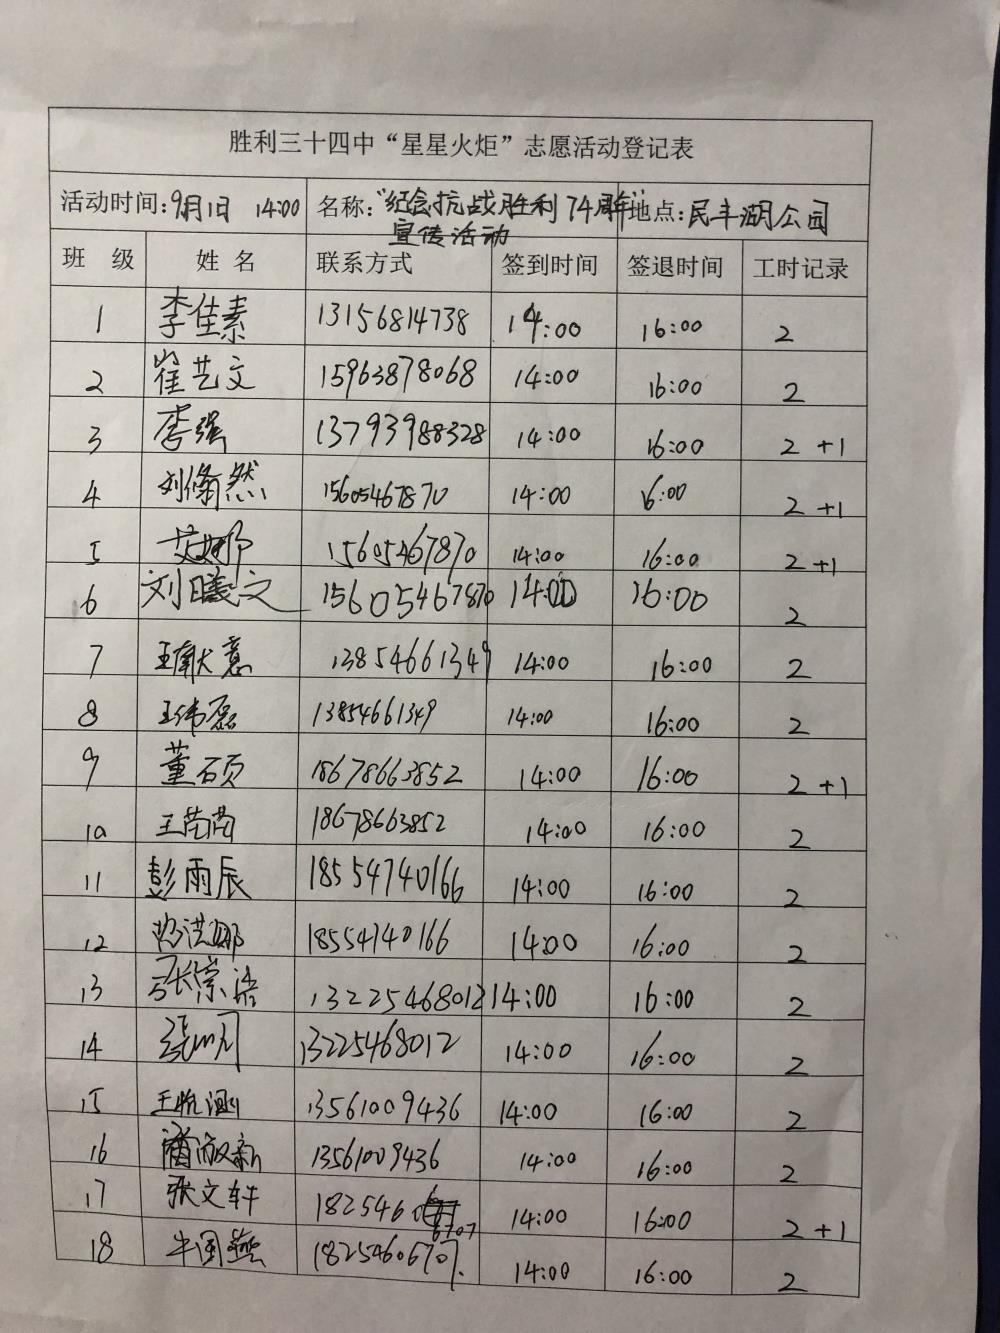 胜利三十四中“星星火炬”志愿活动登记表
活动时间:9月1日 14:00 名称:“纪念抗战胜利74周年” 地点:民丰湖公园
宣传活动
班 级 姓 名 联系方式 签到时间 签退时间 工时记录
1 李佳素 13156814738 14:00 16:00 2
2 崔艺文 15963878068 14:00 16:00 2
3 李强 13793988328 14:00 16:00 2 +1
4 刘脩然 15605467870 14:00 16:00 2 +1
5 15605467870 14:00 16:00 2 +1
6 刘曦文 15605467870 14:00 16:00 2
7 王献意 13854661349 14:00 16:00 2
8 王伟磊 13854661349 14:00 16:00 2
9 董硕 18678663852 14:00 16:00 2 +1
10 王茜茜 18678663852 14:00 16:00 2
11 彭雨辰 18554740166 14:00 16:00 2
12 18554740166 14:00 16:00 2
13 张崇浩 13225468012 14:00 16:00 2
14 13225468012 14:00 16:00 2
15 王悦涵 13561009436 14:00 16:00 2
16 13561009436 14:00 16:00 2
17 张文轩 18254606707 14:00 16:00 2 +1
18 牛国燕 18254606707. 14:00 16:00 2